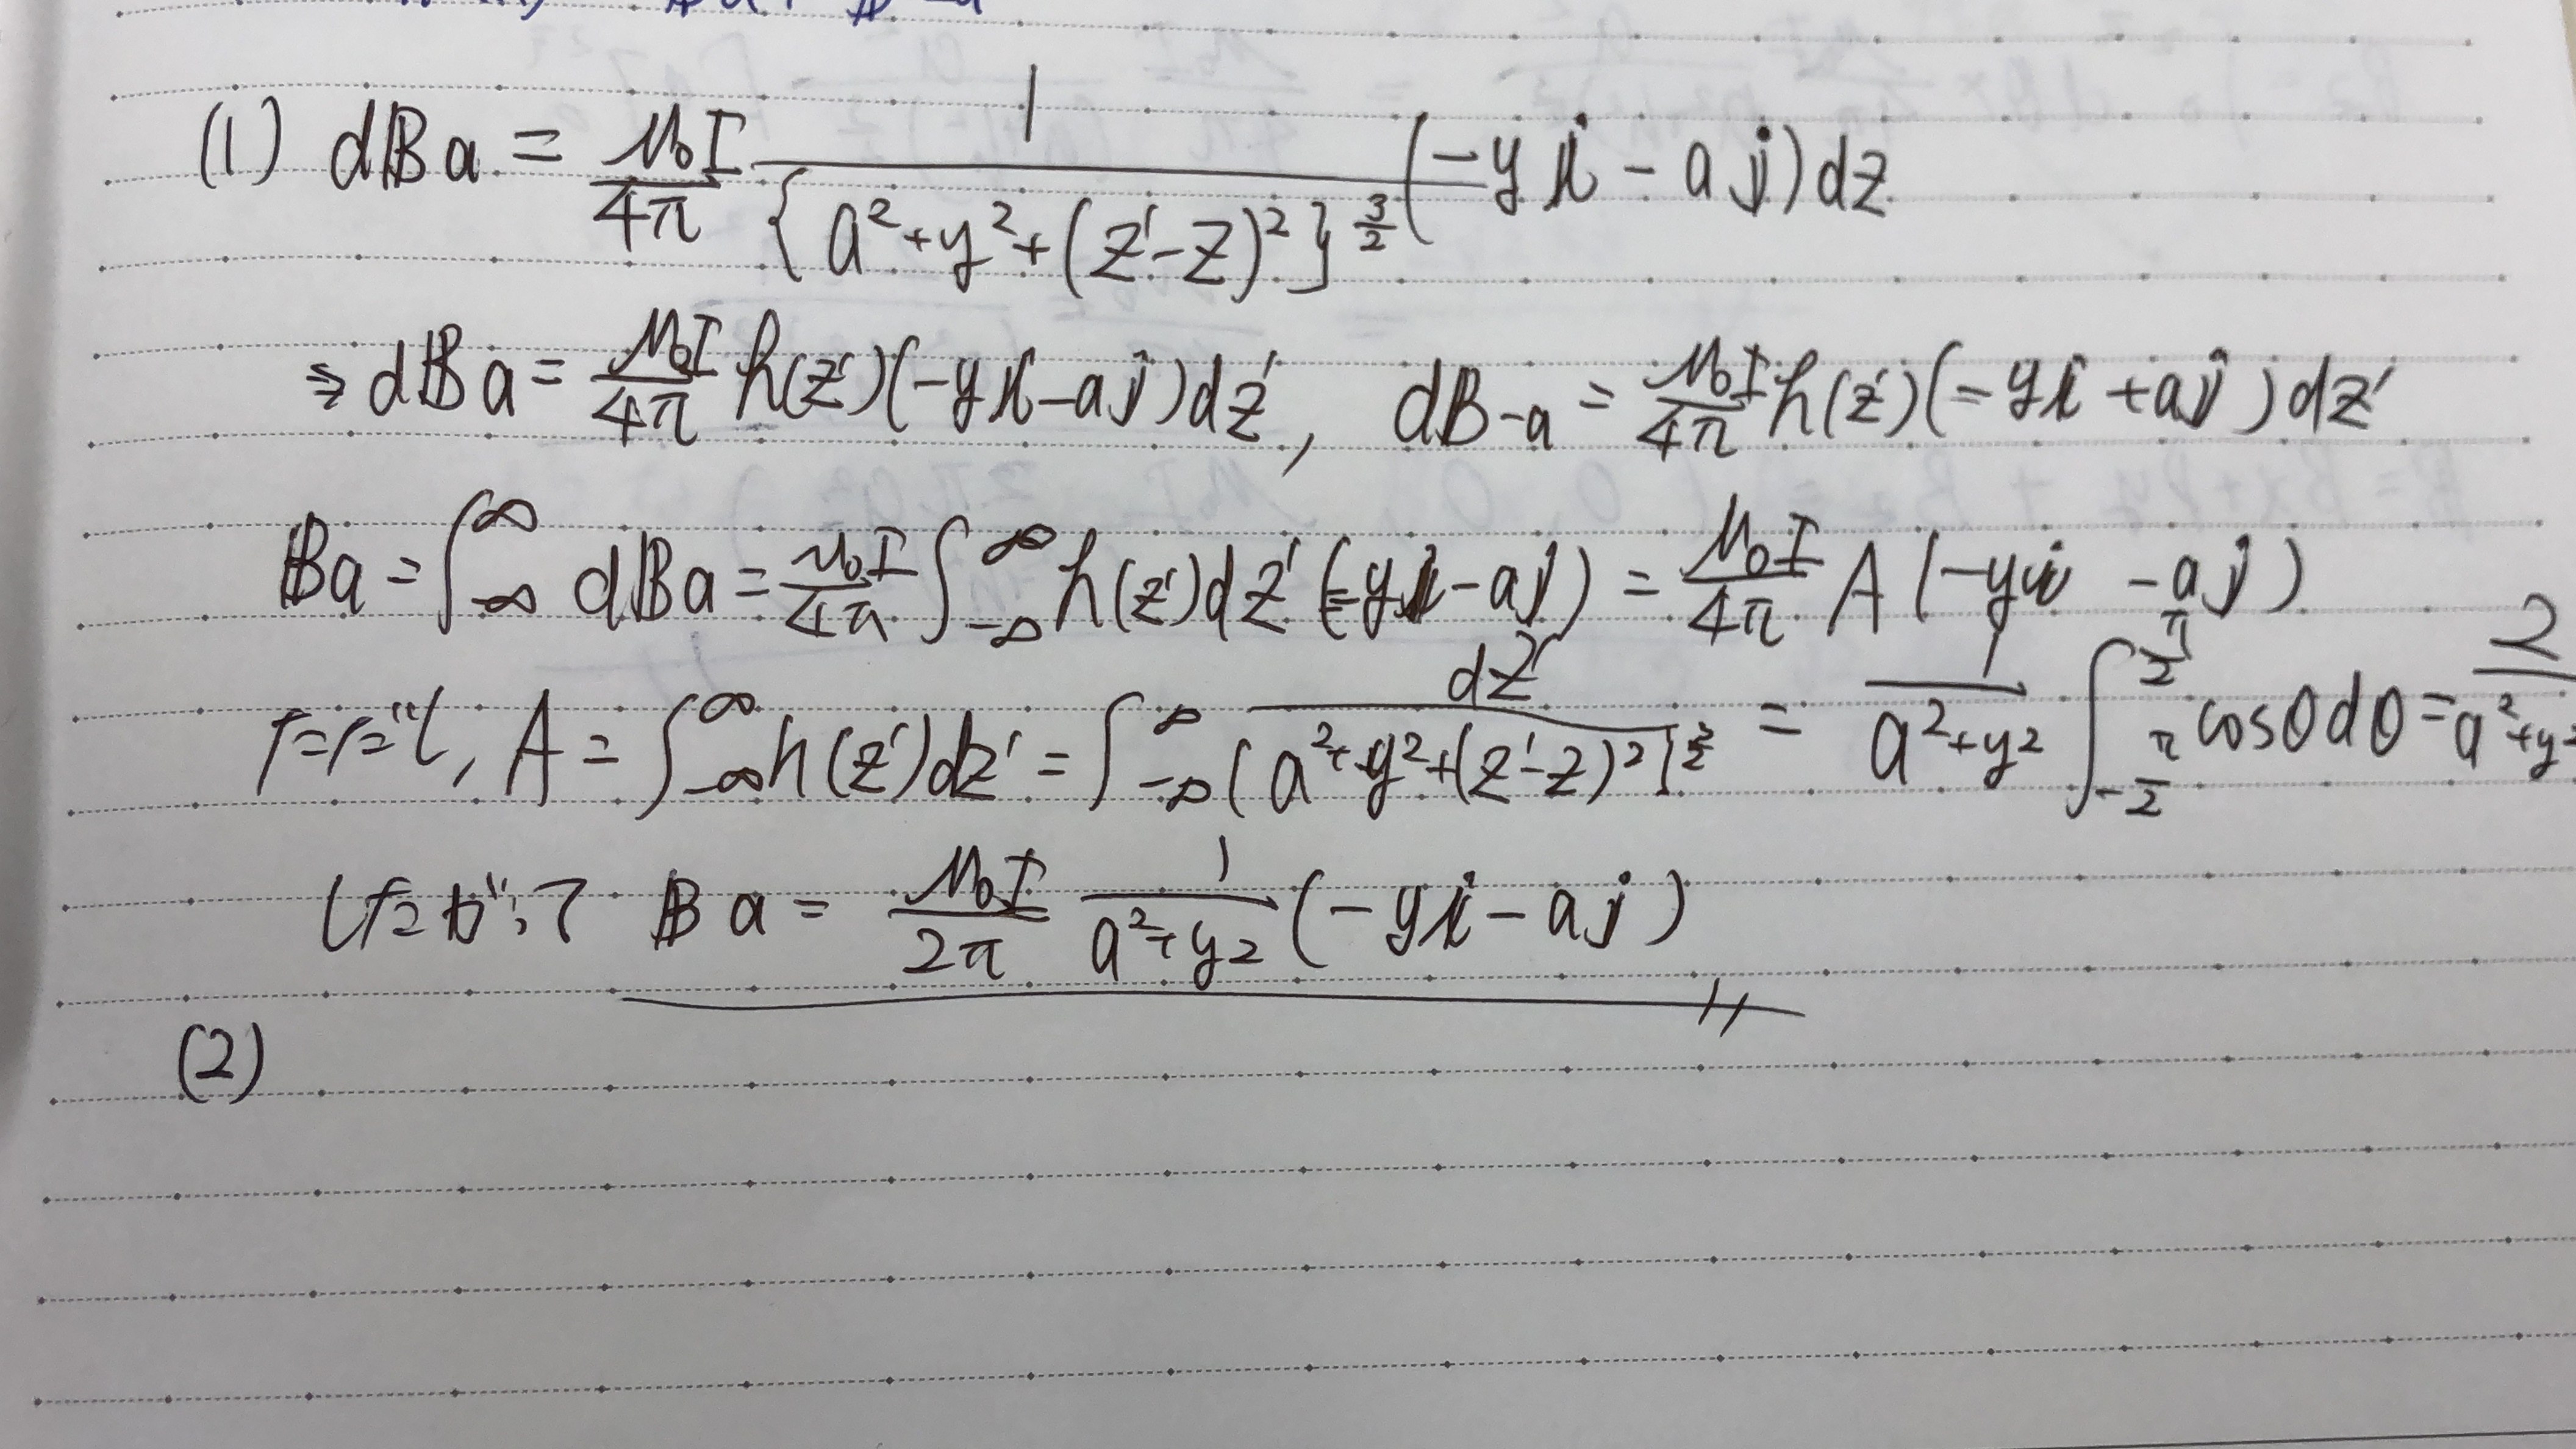 (1) dBa = μ₀I/4π 1/{a²+y²+(z'-z)²}^{3/2} (-yi - aj)dz
⇒ dBa = μ₀I/4π h(z')(-yi-aj)dz', dB-a = μ₀I/4π h(z')(-yi+aj)dz'
Ba = ∫_{-∞}^{∞} dBa = μ₀I/4π ∫_{-∞}^{∞} h(z')dz' (-yi-aj) = μ₀I/4π A (-yi - aj)
ただし, A = ∫_{-∞}^{∞} h(z')dz' = ∫_{-∞}^{∞} dz'/{a²+y²+(z'-z)²}^{3/2} = 1/(a²+y²) ∫_{-π/2}^{π/2} cosθdθ = 2/(a²+y²
したがって Ba = μ₀I/2π 1/(a²+y²) (-yi-aj)
(2)